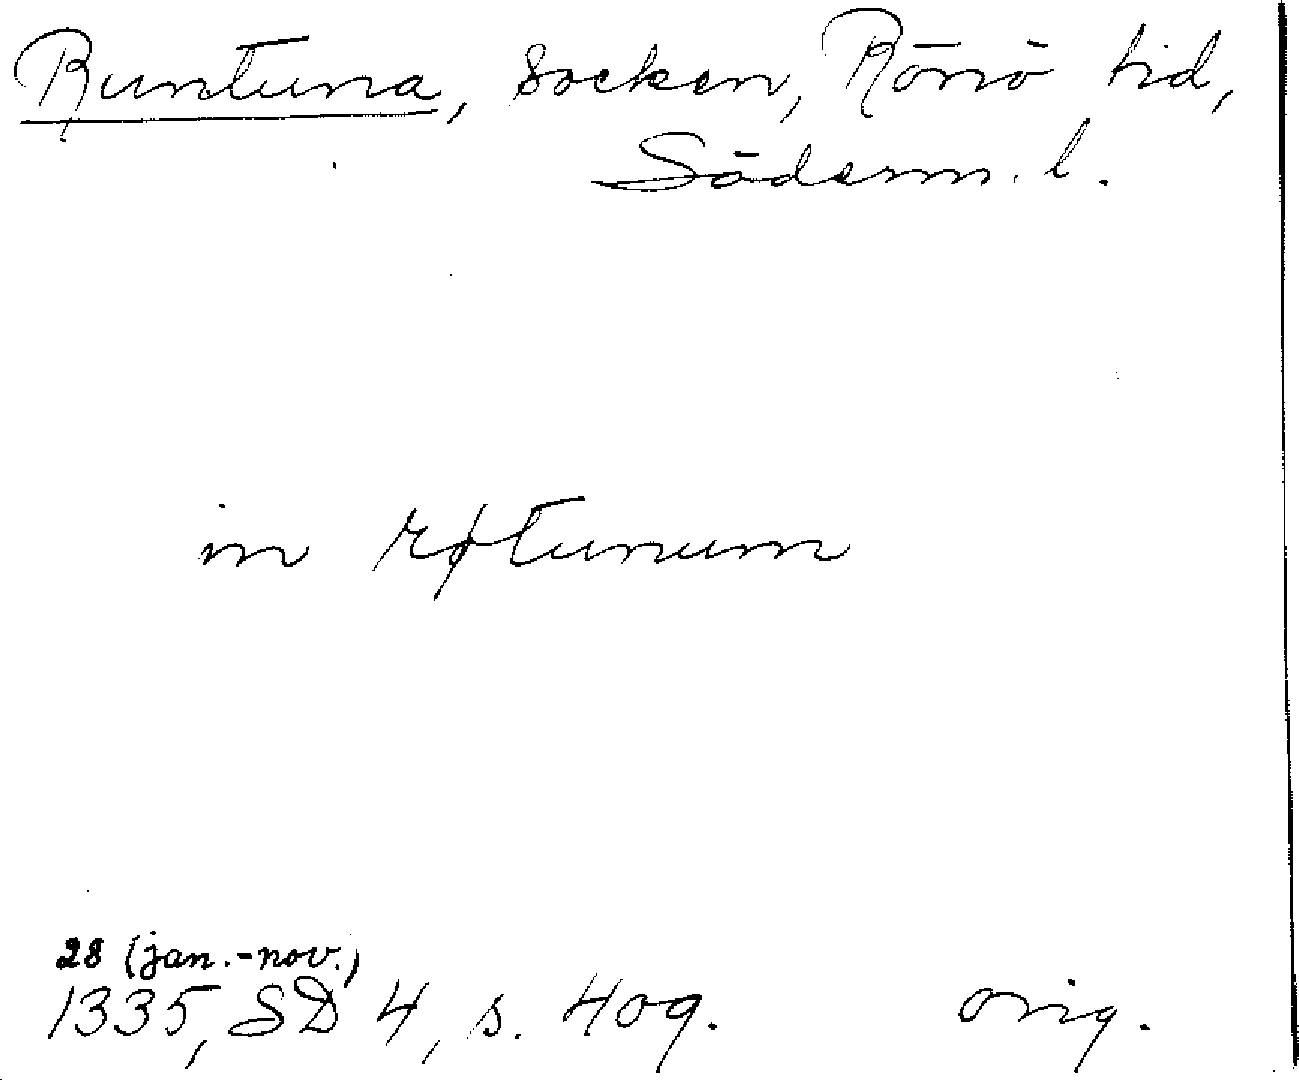 Runtuna, socken, Rönö hd,
Söderm. l.
in røtunum
28 (jan.-nov.)
1335, SD 4, s. 409. orig.